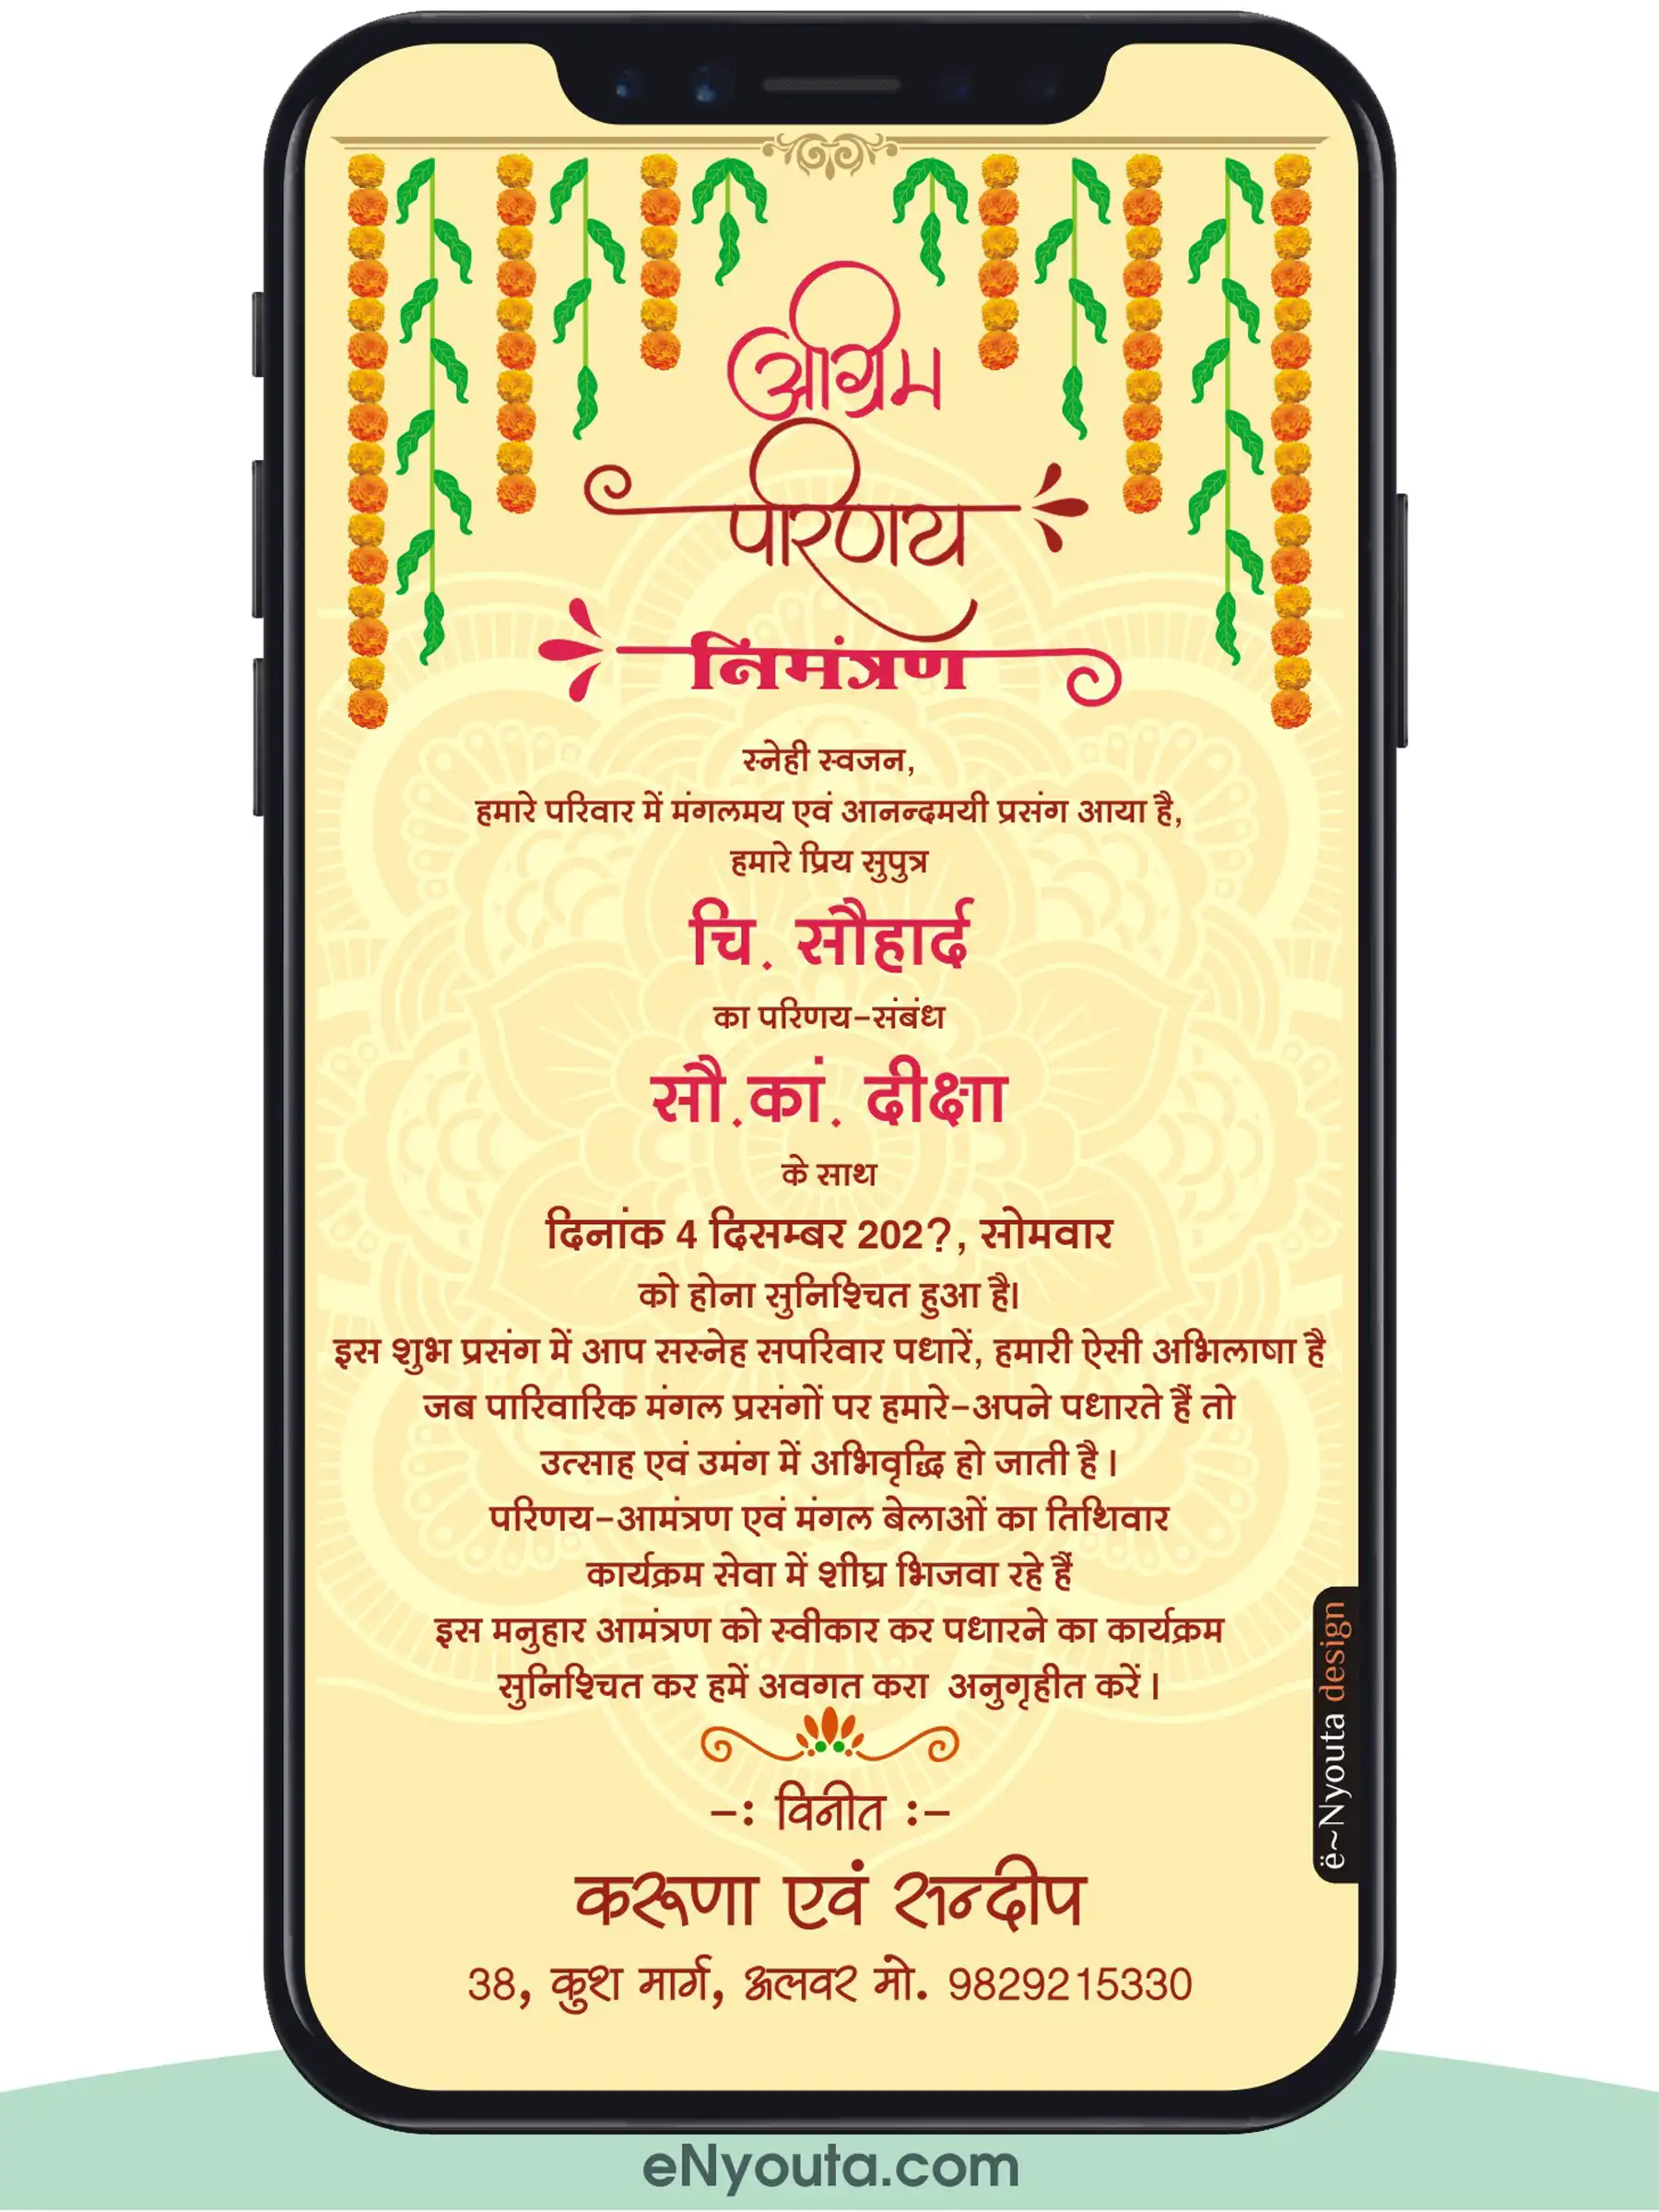 अग्रिम
परिणय
निमंत्रण
स्नेही स्वजन,
हमारे परिवार में मंगलमय एवं आनन्दमयी प्रसंग आया है,
हमारे प्रिय सुपुत्र
चि. सौहार्द
का परिणय-संबंध
सौ.कां. दीक्षा
के साथ
दिनांक 4 दिसम्बर 202?, सोमवार
को होना सुनिश्चित हुआ है।
इस शुभ प्रसंग में आप सस्नेह सपरिवार पधारें, हमारी ऐसी अभिलाषा है
जब पारिवारिक मंगल प्रसंगों पर हमारे-अपने पधारते हैं तो
उत्साह एवं उमंग में अभिवृद्धि हो जाती है ।
परिणय-आमंत्रण एवं मंगल बेलाओं का तिथिवार
कार्यक्रम सेवा में शीघ्र भिजवा रहे हैं
इस मनुहार आमंत्रण को स्वीकार कर पधारने का कार्यक्रम
सुनिश्चित कर हमें अवगत करा अनुगृहीत करें ।
-: विनीत :-
करूणा एवं सन्दीप
38, कुश मार्ग, अलवर मो. 9829215330
ë~Nyouta design
eNyouta.com